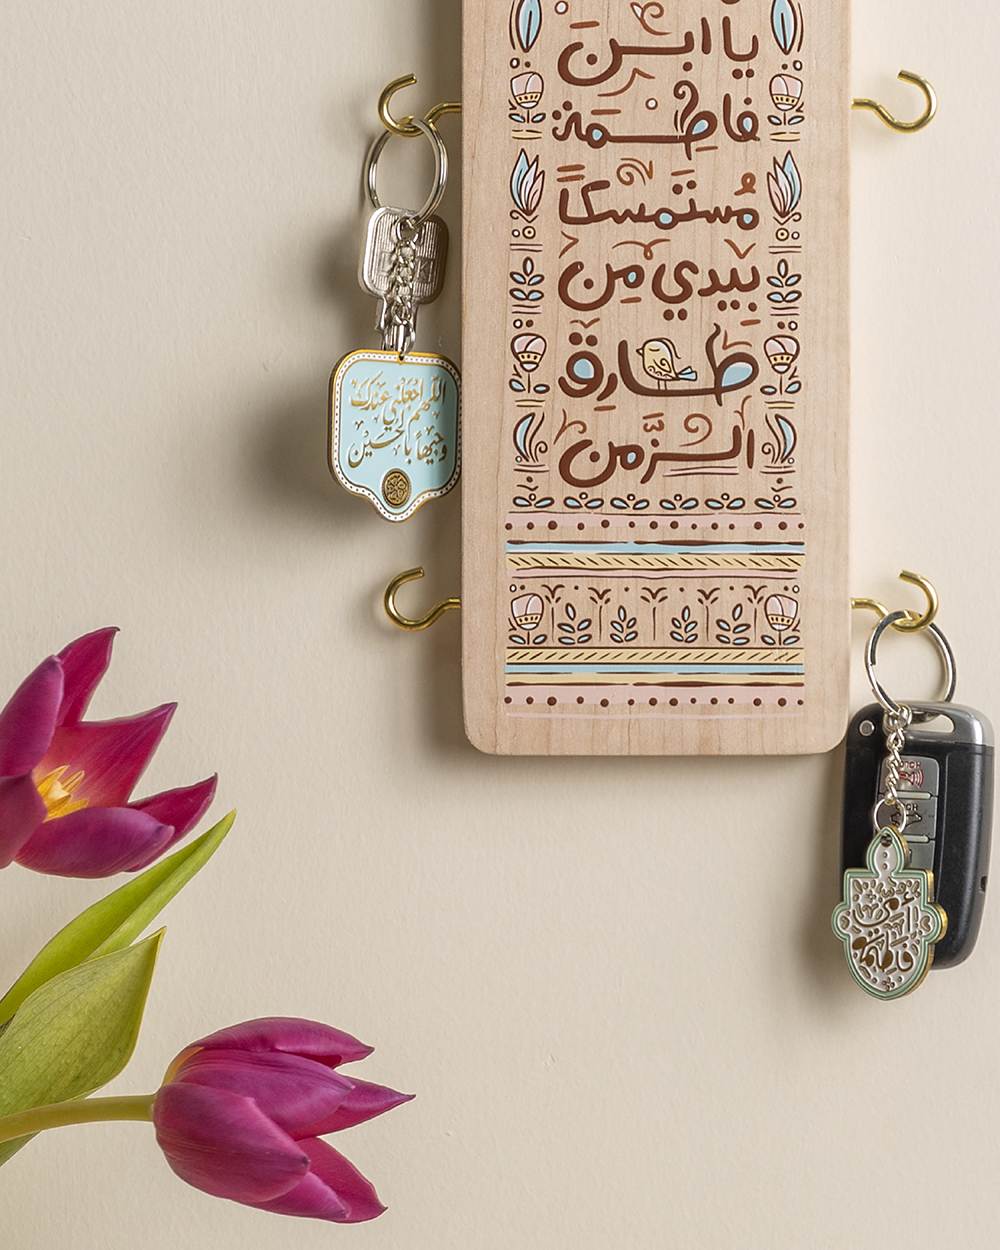 يا ابن
فاطمة
مُستَمسكاً
بيدي مِن
طارق
الزَّمن
اللّهم اجْعَلْني عندك
وجيهاً بالحسين
فاطمة